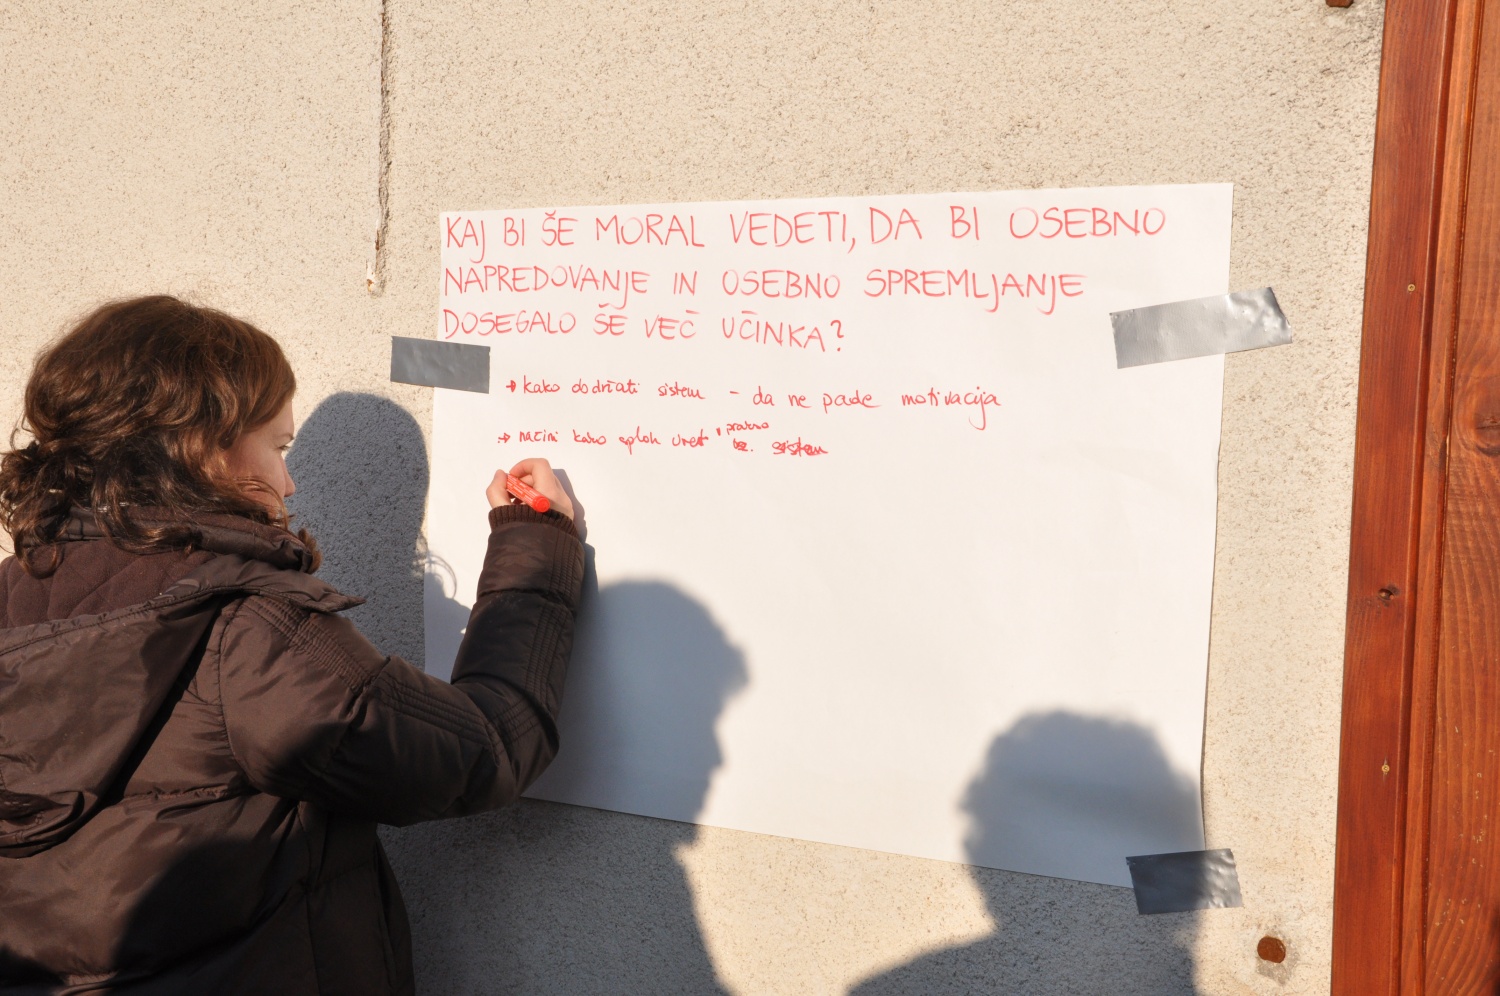 KAJ BI ŠE MORAL VEDETI, DA BI OSEBNO
NAPREDOVANJE IN OSEBNO SPREMLJANJE
DOSEGALO ŠE VEČ UČINKA?
→ kako dodržati sistem - da ne pade motivacija
→ načini kako sploh uvest pravno sistem